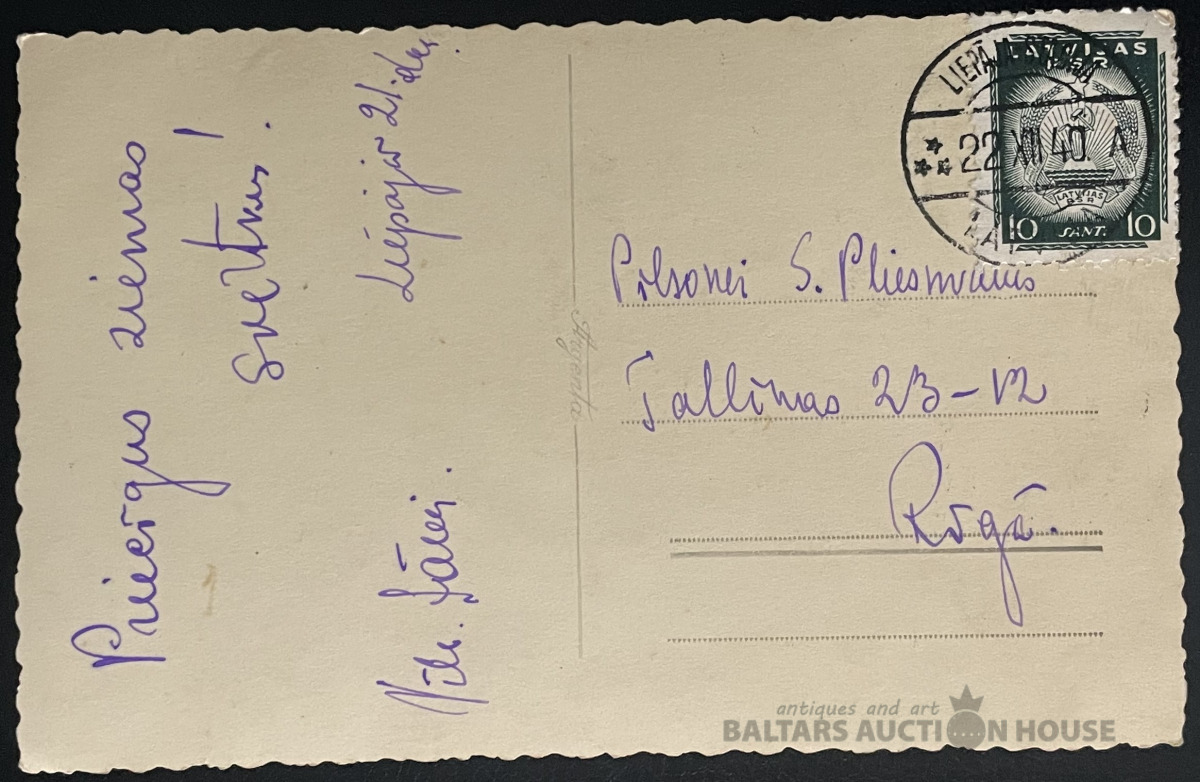 Priecīgus ziemas
svētkus!
Liepājā 21. dec.
Vilc. Jāņi.
Argenta
LATVIJAS
PSR
LATVIJAS
PSR
10 SANT. 10
LIEPĀJA
22 XII 40. A
Pilsonei S. Pliesmanis
Tallinas 23-12
Rīgā.
antiques and art
BALTARS AUCTION HOUSE